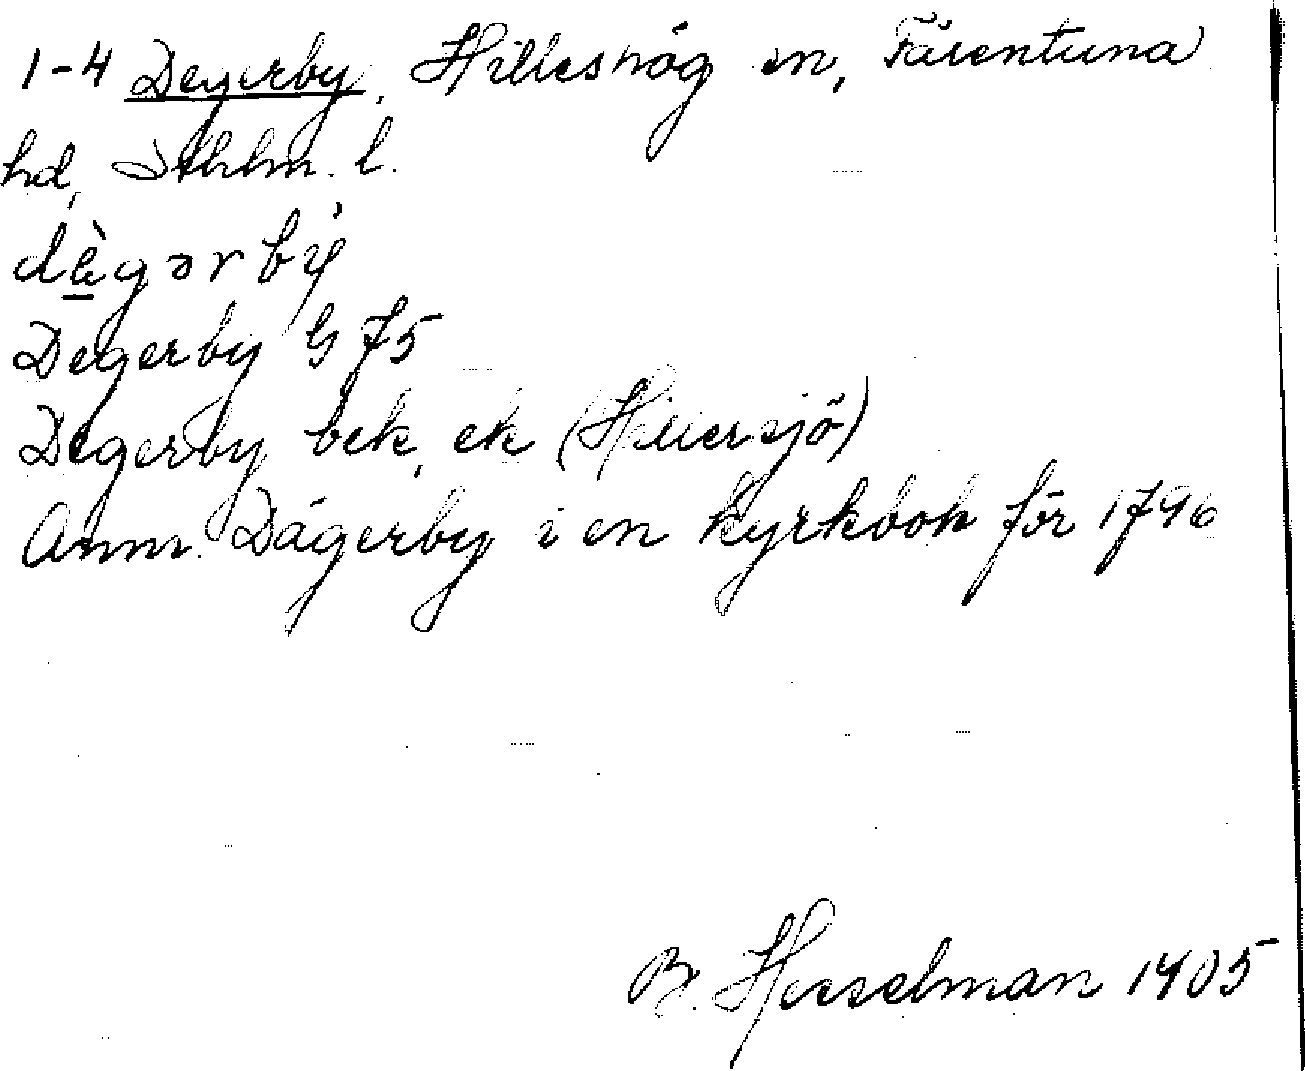 1-4 Degerby, Hilleshög sn, Färentuna
hd, Sthlm. l.
dègərbý
Degerby G 75
Degerby bek, ek (Hillersjö)
Anm. Dägerby i en kyrkbok för 1796
B. Hesselman 1905